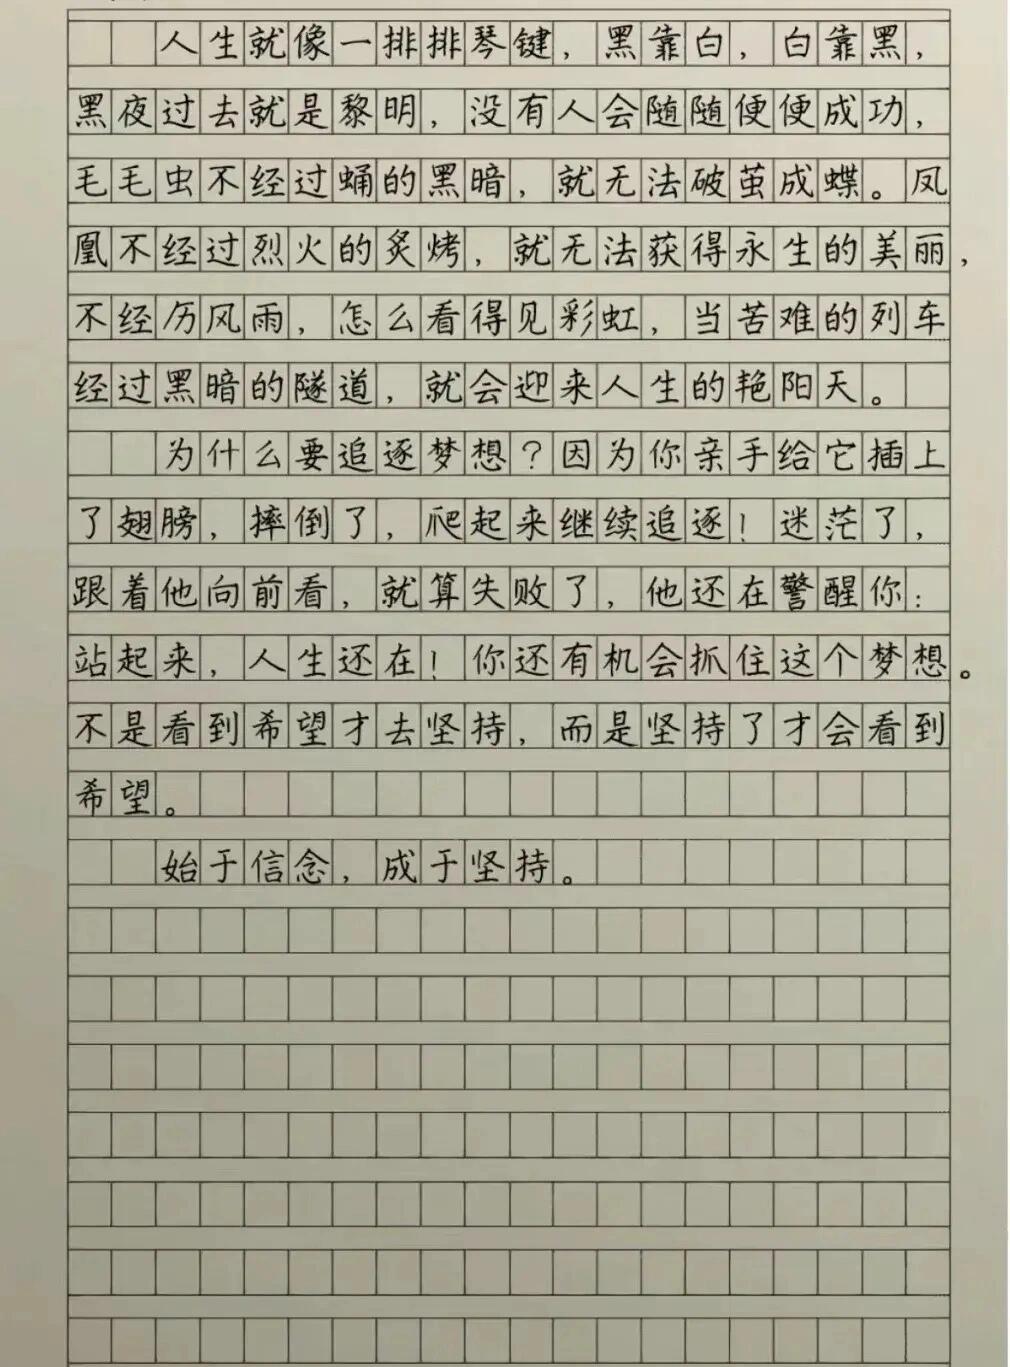 人生就像一排排琴键，黑靠白，白靠黑，
黑夜过去就是黎明，没有人会随随便便成功，
毛毛虫不经过蛹的黑暗，就无法破茧成蝶。凤
凰不经过烈火的炙烤，就无法获得永生的美丽，
不经历风雨，怎么看得见彩虹，当苦难的列车
经过黑暗的隧道，就会迎来人生的艳阳天。
为什么要追逐梦想？因为你亲手给它插上
了翅膀，摔倒了，爬起来继续追逐！迷茫了，
跟着他向前看，就算失败了，他还在警醒你：
站起来，人生还在！你还有机会抓住这个梦想。
不是看到希望才去坚持，而是坚持了才会看到
希望。
始于信念，成于坚持。